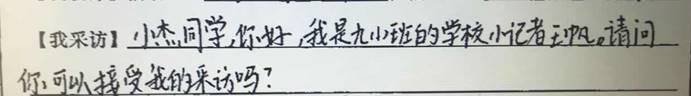 【我采访】小杰同学,你好,我是九小班的学校小记者王帆。请问
你可以接受我的采访吗?